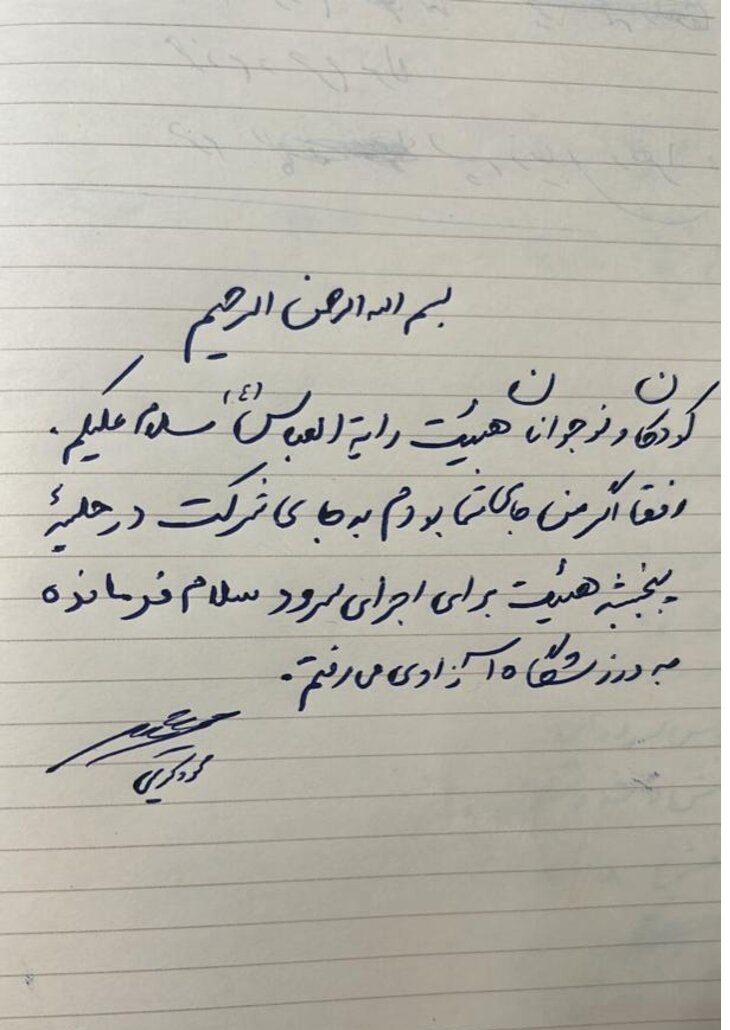 بسم الله الرحمن الرحیم
کودکان و نوجوانان هیئت رایة العباس (ع) سلام علیکم.
رفقا اگر من جای شما بودم به جای شرکت در جلسهٔ
پنجشنبه هیئت برای اجرای سرود سلام فرمانده
به ورزشگاه آزادی می رفتم.
محمود کریمی